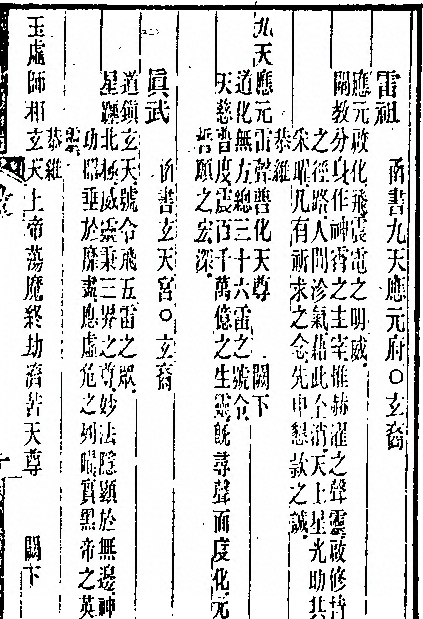 雷祖　　　函書九天應元府○玄裔
應元啟化飛震電之明威
闡教分身作神霄之主宰惟赫濯之聲靈啟修持
之徑路人間沴氣藉此全消天上星光助其
朱曜凡有祈求之念先申懇款之誠
恭維
九天應元雷聲普化天尊　　闕下
道化無方總三十六雷之號令
天慈普度震百千萬億之生靈既尋聲而度化元
誓願之宏深
真武　　　函書玄天宮○玄裔
道鎮玄天號令飛五雷之眾
星躔北極威靈秉三界之尊妙法隱顯於無邊神
功昭垂於靡盡應虛危之列曜實黑帝之英
靈
恭維
玉虛師相玄天上帝蕩魔終劫濟苦天尊　　闕下